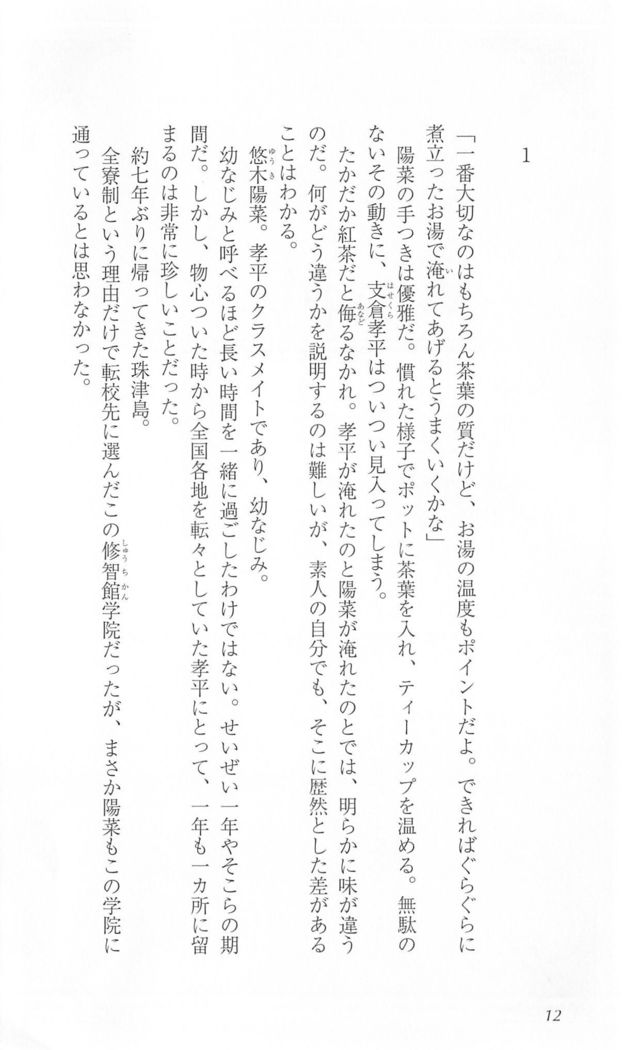 1
「一番大切なのはもちろん茶葉の質だけど、お湯の温度もポイントだよ。できればぐらぐらに
煮立ったお湯で淹れてあげるとうまくいくかな」
陽菜の手つきは優雅だ。慣れた様子でポットに茶葉を入れ、ティーカップを温める。無駄の
ないその動きに、支倉孝平はついつい見入ってしまう。
たかだか紅茶だと侮るなかれ。孝平が淹れたのと陽菜が淹れたのとでは、明らかに味が違う
のだ。何がどう違うかを説明するのは難しいが、素人の自分でも、そこに歴然とした差がある
ことはわかる。
悠木陽菜。孝平のクラスメイトであり、幼なじみ。
幼なじみと呼べるほど長い時間を一緒に過ごしたわけではない。せいぜい一年やそこらの期
間だ。しかし、物心ついた時から全国各地を転々としていた孝平にとって、一年も一カ所に留
まるのは非常に珍しいことだった。
約七年ぶりに帰ってきた珠津島。
全寮制という理由だけで転校先に選んだこの修智館学院だったが、まさか陽菜もこの学院に
通っているとは思わなかった。
12